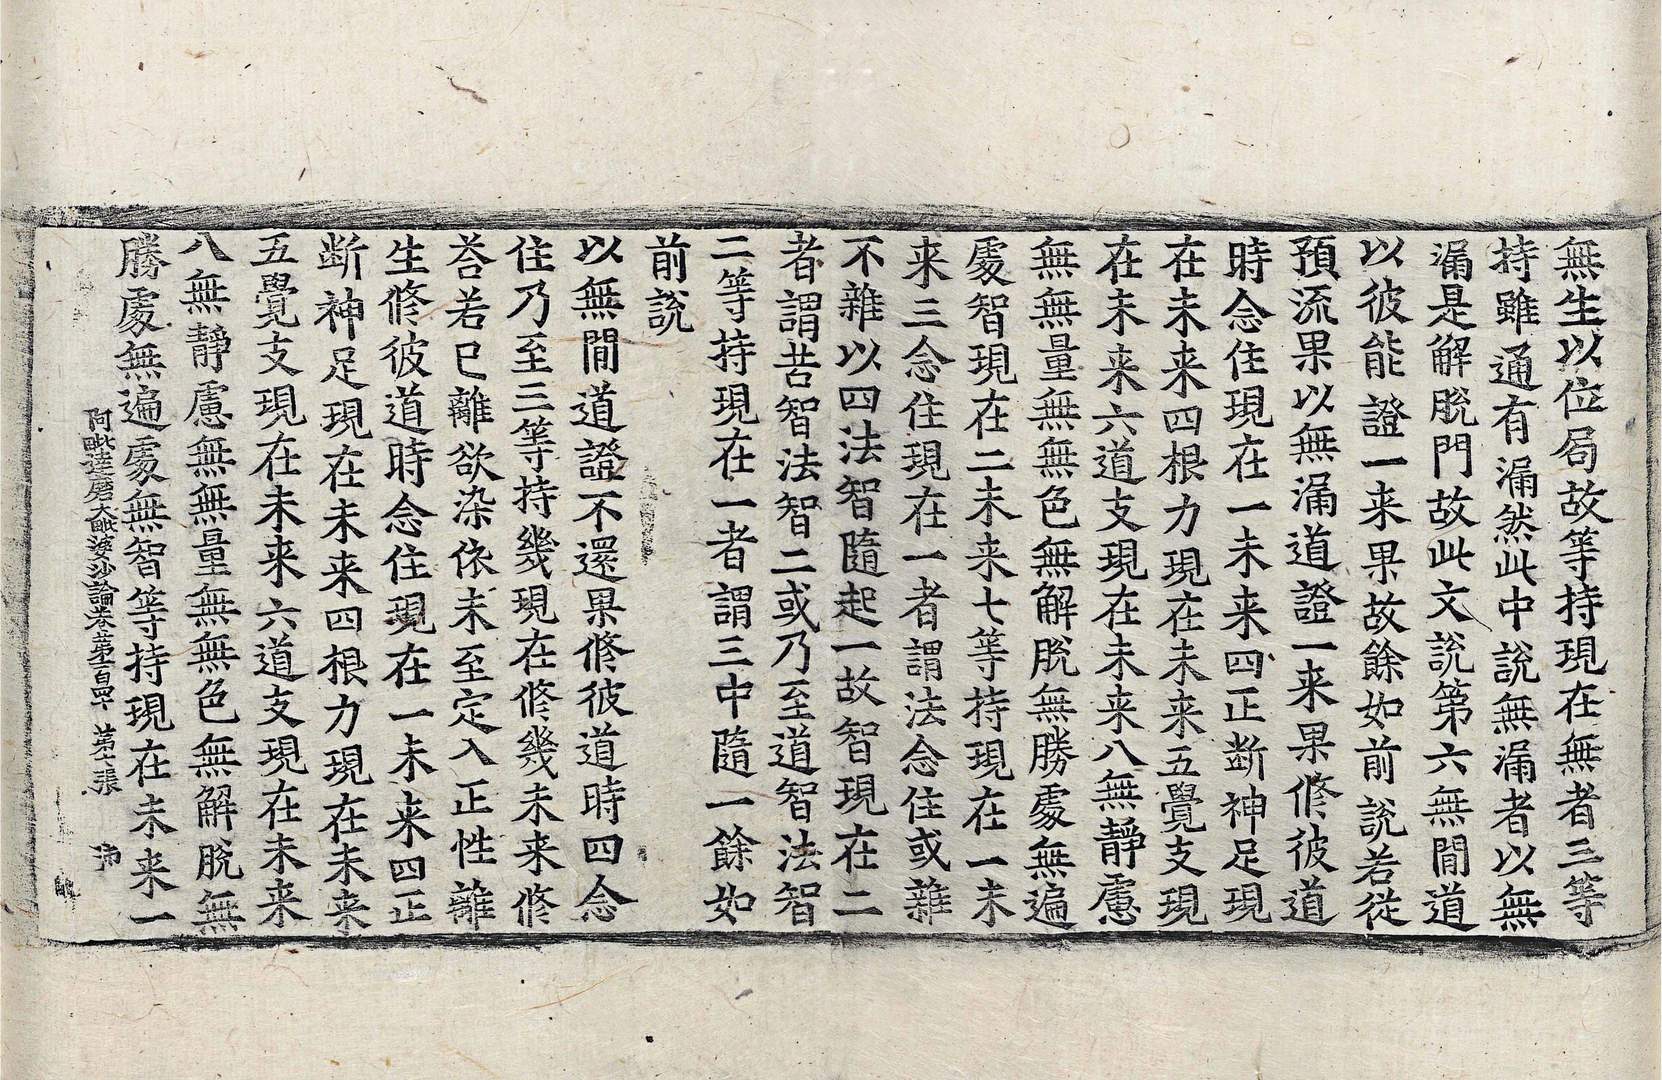 無生以位局故等持現在無者三等
持雖通有漏然此中說無漏者以無
漏是解脫門故此文說第六無間道
以彼能證一来果故餘如前說若從
預流果以無漏道證一来果修彼道
時念住現在一未来四正断神足現
在未来四根力現在未来五覺支現
在未来六道支現在未来八無靜慮
無無量無無色無解脫無勝處無遍
處智現在二未来七等持現在一未
来三念住現在一者謂法念住或雜
不雜以四法智隨起一故智現在二
者謂苦智法智二或乃至道智法智
二等持現在一者謂三中隨一餘如
前說
以無間道證不還果修彼道時四念
住乃至三等持幾現在修幾未来修
荅若已離欲染依未至定入正性離
生修彼道時念住現在一未来四正
断神足現在未来四根力現在未来
五覺支現在未来六道支現在未来
八無靜慮無無量無無色無解脫無
勝處無遍處無智等持現在未来一
阿毗達磨大毗婆沙論卷第一百四 第十張